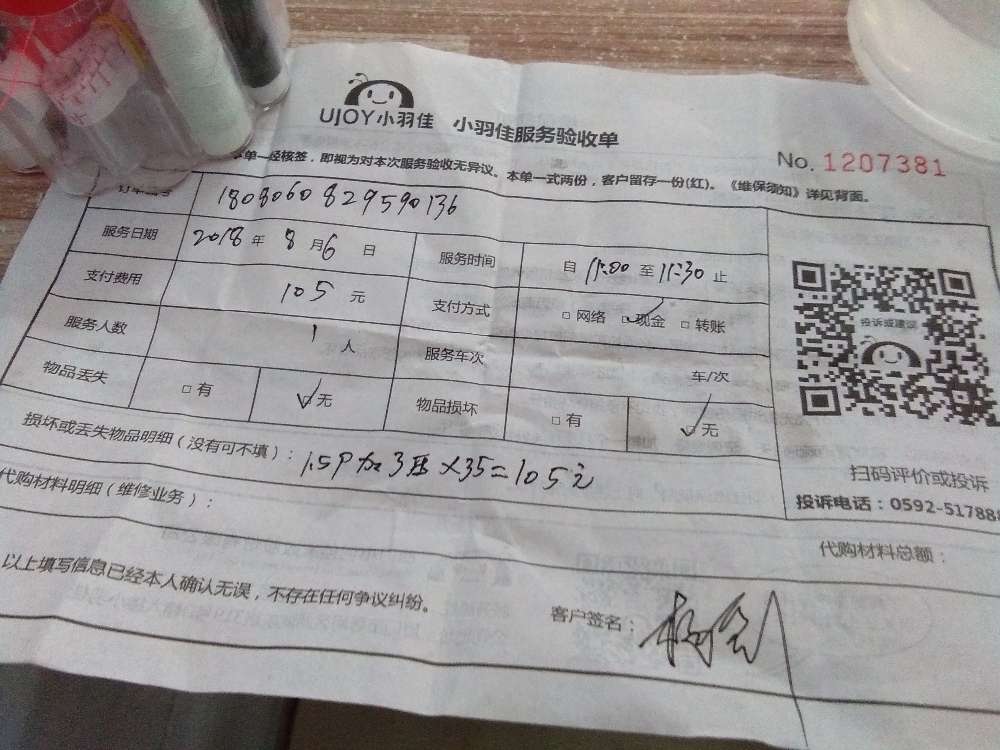 UJOY小羽佳 小羽佳服务验收单
No. 1207381
本单一经核签，即视为对本次服务验收无异议。本单一式两份，客户留存一份(红)。《维保须知》详见背面。
订单编号 1808060829590136
服务日期 2018年8月6日 服务时间 自 11:00 至 11:30 止
支付费用 105 元 支付方式 □网络 ☑现金 □转账
服务人数 1 人 服务车次 车/次
物品丢失 □有 ☑无 物品损坏 □有 ☑无
投诉或建议
扫码评价或投诉
投诉电话：0592-517888
损坏或丢失物品明细（没有可不填）： 1.5P加3压×35=105元
代购材料明细（维修业务）：
代购材料总额：
以上填写信息已经本人确认无误，不存在任何争议纠纷。
客户签名：